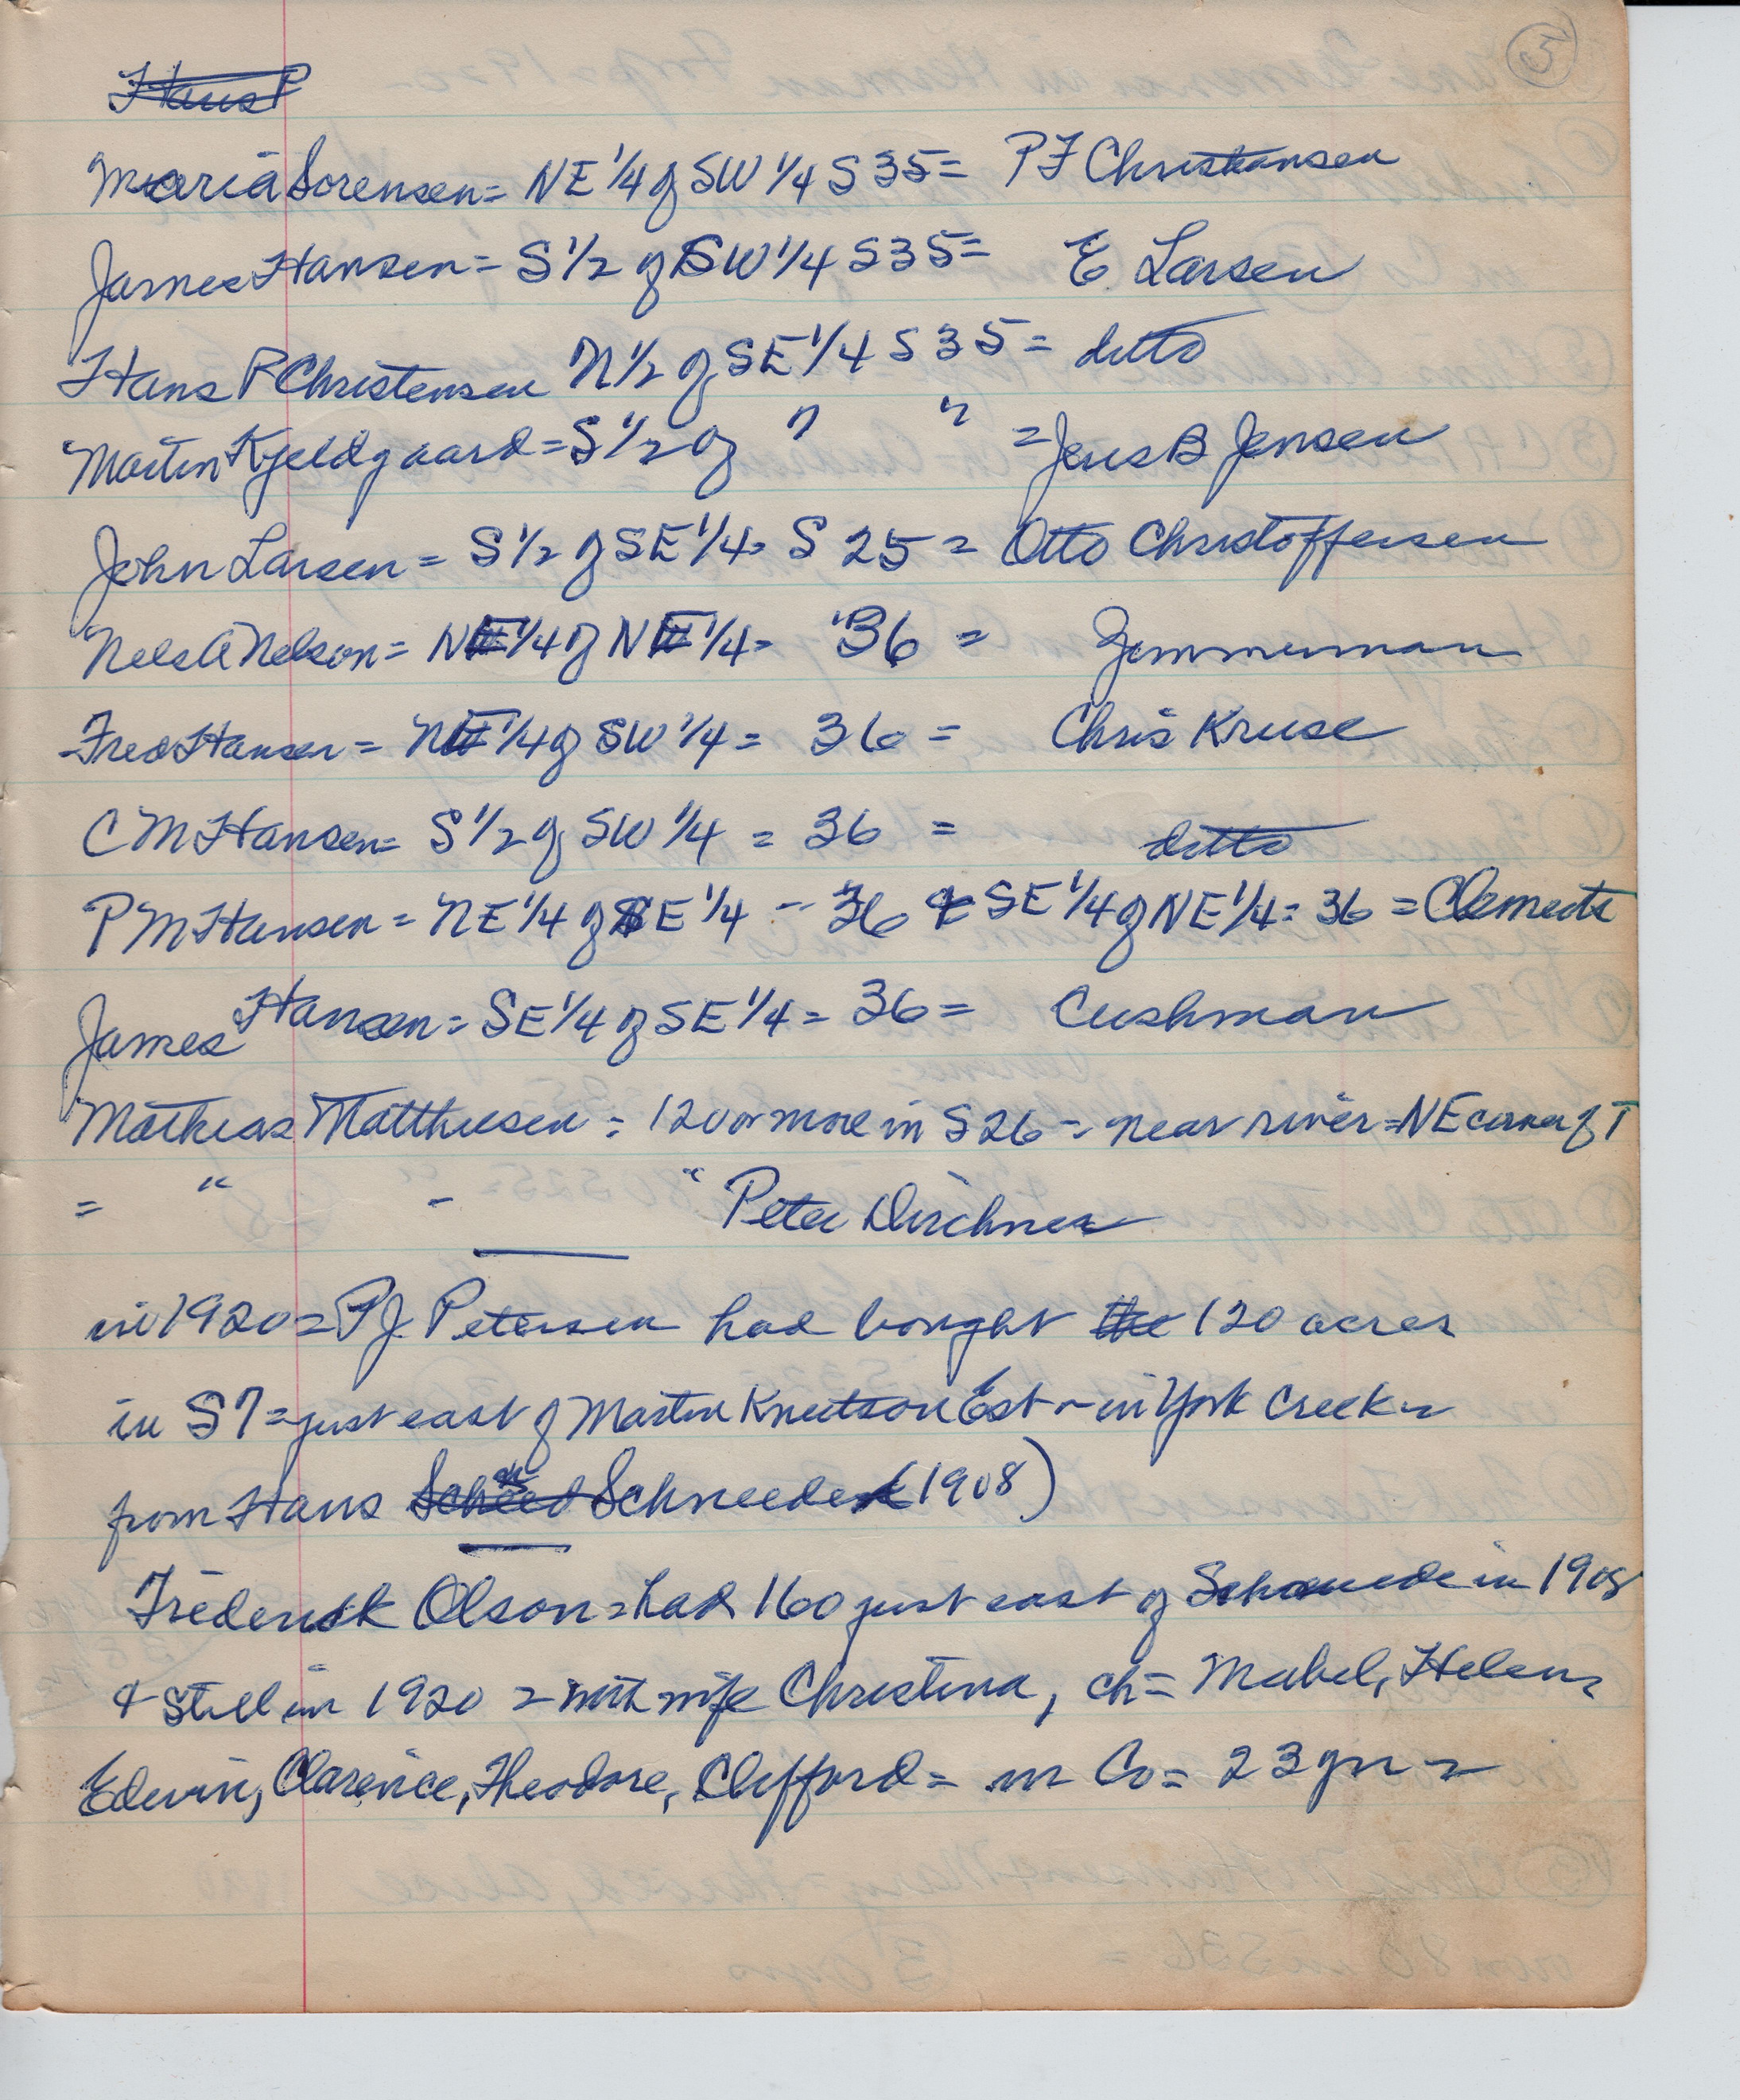 5
Hans P
Maria Sorensen = NE 1/4 of SW 1/4 S 35 = P F Christiansen
James Hansen = S 1/2 of SW 1/4 S 35 = E. Larsen
Hans P Christensen N 1/2 of SE 1/4 S 35 = ditto
Martin Kjeldgaard = S 1/2 of " " = Jens B Jensen
John Larsen = S 1/2 of SE 1/4 = S 25 = Otto Christoffersen
Nels A Nelson = NE 1/4 of NE 1/4 = 36 = Zimmerman
Fred Hansen = NE 1/4 of SW 1/4 = 36 = Chris Kruse
C M Hansen = S 1/2 of SW 1/4 = 36 = ditto
P M Hansen = NE 1/4 of SE 1/4 - 36 & SE 1/4 of NE 1/4 = 36 = Clements
James Hansen = SE 1/4 of SE 1/4 = 36 = Cushman
Mathias Matthiesen = 120 or more in S 26 - near river = NE corner of T
= " - " Peter
in 1920 = P J. Petersen had bought the 120 acres
in S 7 = just east of Martin Knutson Est - in York Creek -
from Hans Schneede (1908)
Frederick Olson = had 160 just east of Schneede in 1908
& still in 1920 = with wife Christina, ch = Mabel, Helen,
Edwin, Clarence, Theodore, Clifford = in Co = 23 yrs -